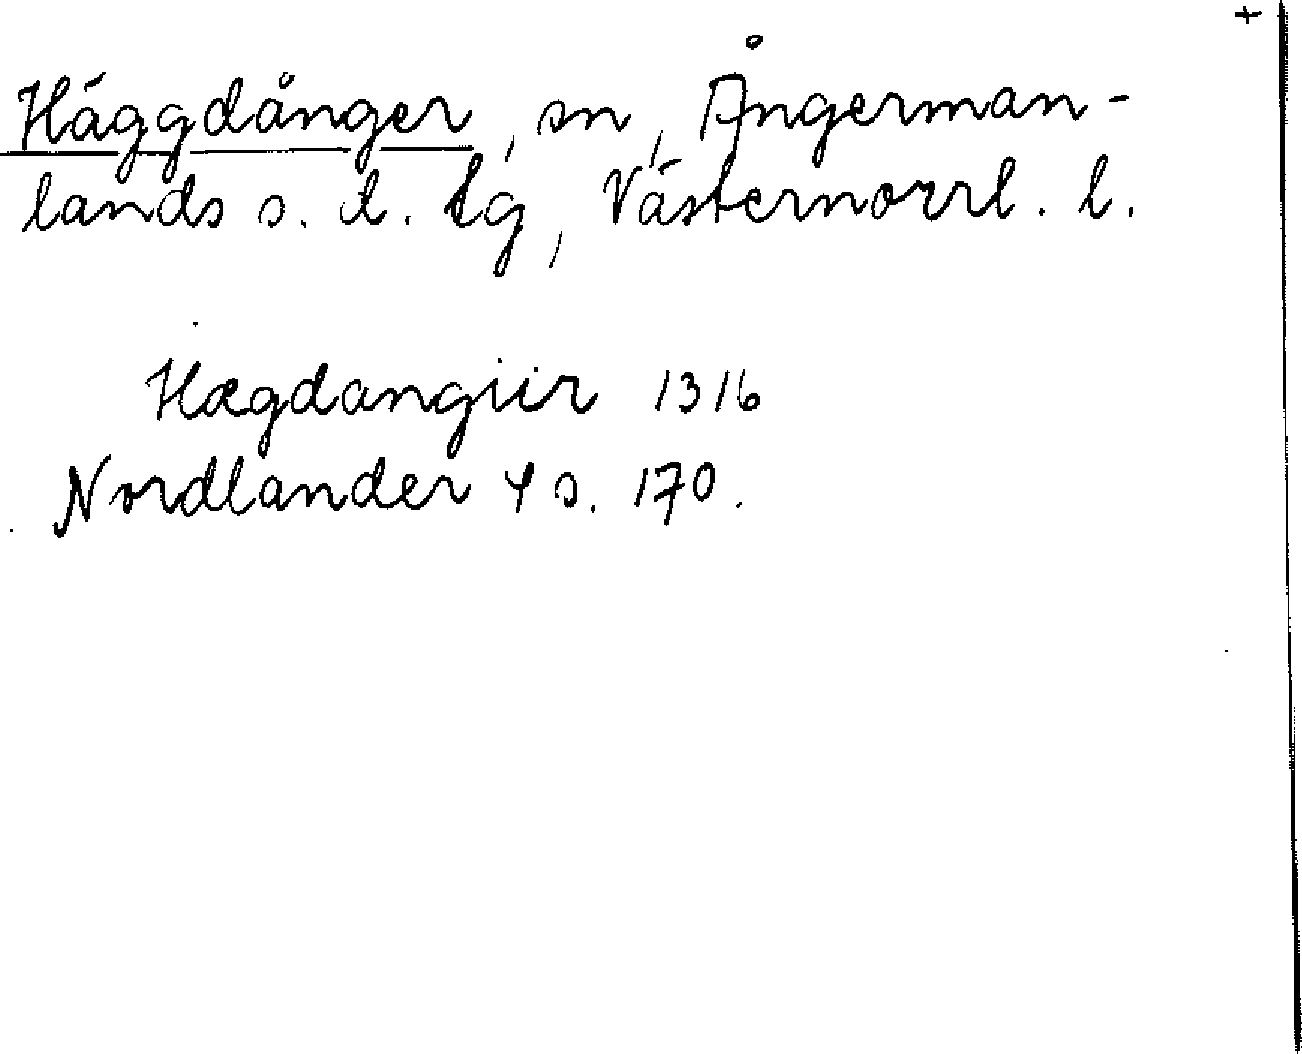 +
Häggdånger, sn, Ångerman-
lands s. d. tg, Västernorrl. l.
Hægdangiir 1316
Nordlander 4 s. 170.